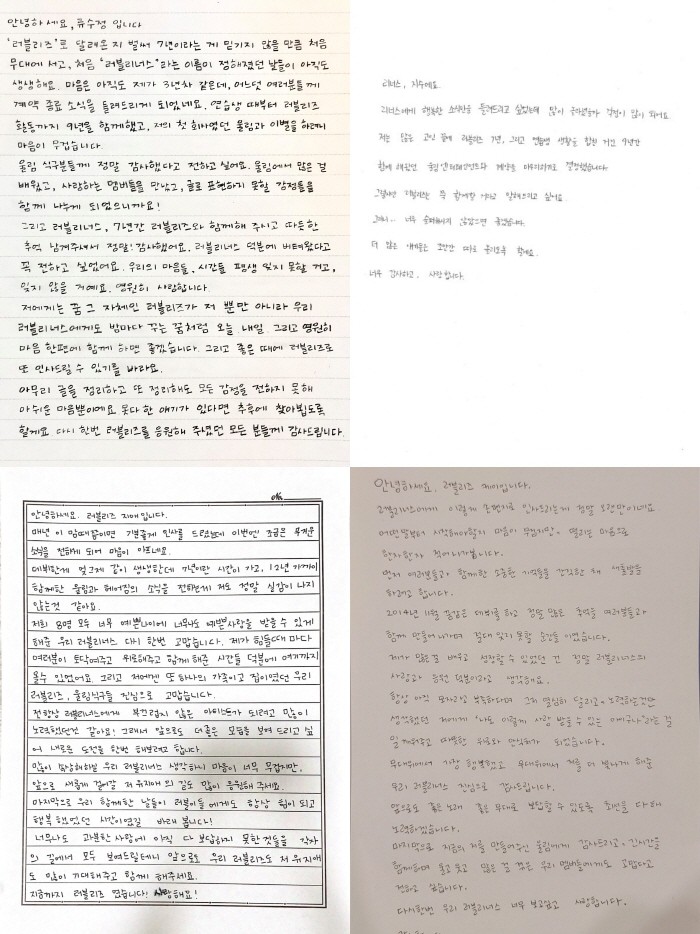 안녕하세요, 류수정 입니다
'러블리즈'로 달려온 지 벌써 7년이라는 게 믿기지 않을 만큼 처음
무대에 서고, 처음 '러블리너스'라는 이름이 정해졌던 날들이 아직도
생생해요. 마음은 아직도 제가 3년차 같은데, 어느덧 여러분들께
계약 종료 소식을 들려드리게 되었네요. 연습생 때부터 러블리즈
활동까지 9년을 함께했고, 저의 첫 회사였던 울림과 이별을 하려니
마음이 무겁습니다.
울림 식구분들께 정말 감사했다고 전하고 싶어요. 울림에서 많은 걸
배웠고, 사랑하는 멤버들을 만났고, 글로 표현하지 못할 감정들을
함께 나누게 되었으니까요!
그리고 러블리너스, 7년간 러블리즈와 함께해 주시고 따듯한
추억 남겨주셔서 정말! 감사했어요. 러블리너스 덕분에 버텨왔다고
꼭 전하고 싶었어요. 우리의 마음들, 시간들 평생 잊지 못할 거고,
잊지 않을 거예요. 영원히 사랑합니다.
저에게는 꿈 그 자체인 러블리즈가 저 뿐만 아니라 우리
러블리너스에게도 밤마다 꾸는 꿈처럼 오늘. 내일. 그리고 영원히
마음 한편에 함께 하면 좋겠습니다. 그리고 좋은 때에 러블리즈로
또 인사드릴 수 있기를 바라요.
아무리 글을 정리하고 또 정리해도 모든 감정을 전하지 못해
아쉬운 마음뿐이에요 못다 한 얘기가 있다면 추후에 찾아뵙도록
할게요. 다시 한번 러블리즈를 응원해 주셨던 모든 분들께 감사드립니다.
리너스, 지수예요.
리너스에게 행복한 소식만을 들려드리고 싶었는데 많이 놀라셨을까 걱정이 많이 되어요.
저는 많은 고민 끝에 러블리즈 7년, 그리고 연습생 생활을 합친 기간 9년간
함께 해왔던 울림엔터테인먼트와 계약을 마무리하기로 결정했습니다.
그렇지만 러블리즈는 쭉 함께할 거라고 말해드리고 싶어요
그러니.. 너무 슬퍼하시지 않았으면 좋겠습니다.
더 많은 얘기들은 조만간 따로 올리도록 할게요.
너무 감사하고, 사랑합니다.
안녕하세요. 러블리즈 지애입니다.
매년 이 맘때쯤이면 기분좋게 인사를 드렸는데 이번엔 조금은 무거운
소식을 전하게 되어 마음이 아프네요.
데뷔한게 엊그제 같이 생생한데 7년이란 시간이 가고, 12년 가까이
함께한 울림과 헤어짐의 소식을 전하려니 저도 정말 실감이 나지
않는것 같아요.
저희 8명 모두 너무 예쁜나이에 너무나도 예쁜사랑을 받을 수 있게
해준 우리 러블리너스 다시 한번 고맙습니다. 제가 힘들때 마다
여러분이 토닥여주고 위로해주고 함께 해준 시간들 덕분에 여기까지
올수 있었어요. 그리고 저에겐 또 하나의 가족이고 집이였던 우리
러블리즈, 울림식구들 진심으로 고맙습니다.
전 항상 러블리너스에게 부끄럽지 않은 아티스트가 되려고 많이
노력했던것 같아요! 그래서 앞으로도 더 좋은 모습을 보여 드리고 싶
어 새로운 도전을 한번 해보려고 합니다.
많이 속상해하실 우리 러블리너스 생각하니 마음이 너무 무겁지만,
앞으로 새롭게 걸어갈 저 유지애의 길도 많이 응원해 주세요.
마지막으로 우리 함께한 날들이 러블이들에게도 항상 힘이 되고
행복했었던 시간이였길 바래 봅니다!
너무나도 과분한 사랑에 아직 다 보답하지 못한것들을 각자
의 길에서 모두 보여드릴테니 앞으로도 우리 러블리즈도 저 유지애
도 많이 기대해주고 함께 해주세요.
지금까지 러블리즈 였습니다! 사랑해요!
안녕하세요. 러블리즈 케이입니다.
러블리너스에게 이렇게 손편지로 인사드리는게 정말 오랜만이네요
어떤말부터 시작해야할지 마음이 무겁지만. 떨리는 마음으로
한자한자 적어나가봅니다.
먼저 여러분들과 함께한 소중한 기억들을 간직한 채 새출발을
하려고 합니다.
2014년 11월 꿈같은 데뷔를 하고 정말 많은 추억을 여러분들과
함께 만들어나가며 절대 잊지 못할 순간들 이었습니다.
제가 많은걸 배우고 성장할 수 있었던 건 정말 러블리너스의
사랑과 응원 덕분이라고 생각해요.
항상 아직 모자라고 부족하다며 그저 열심히 달리고 노력하는것만
생각했던 저에게 '나도 이렇게 사랑 받을 수 있는 아이구나'라는 걸
알게해주고 따뜻한 위로와 안식처가 되었습니다.
무대위에서 가장 행복했고 무대위에서 저를 더 빛나게 해준
우리 러블리너스 진심으로 감사드립니다.
앞으로도 좋은노래 좋은 무대로 보답할 수 있도록 최선을 다해
노력하겠습니다.
마지막으로 지금의 저를 만들어주신 울림에게 감사드리고, 긴시간을
함께하며 울고 웃고 많은 걸 겪은 우리 멤버들에게도 고맙다고
전하고 싶습니다.
다시한번 우리 러블리너스 너무 보고싶고 사랑합니다.